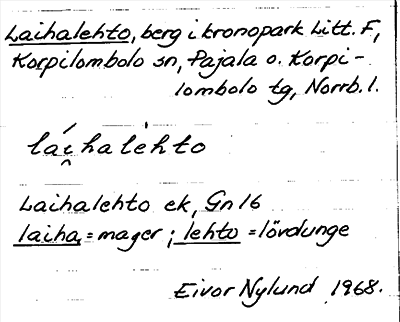 Laihalehto, berg i kronopark Litt. F,
Korpilombolo sn, Pajala o. Korpi-
lombolo tg, Norrb. l.
lái̯halèhto
Laihalehto ek, Gn 16
laiha = mager ; lehto = lövdunge
Eivor Nylund 1968.